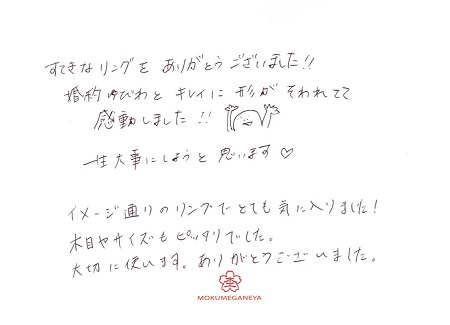 すてきなリングを ありがとうございました!!
婚約ゆびわと キレイに 形が そわれてて
感動しました !!
一生大事にしようと思います♡
イメージ通りのリングでとても気に入りました!
木目やサイズもピッタリでした。
大切に使います。ありがとうございました。
MOKUMEGANEYA